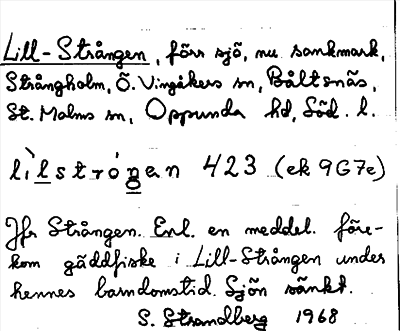 Lill-Strången, förr sjö, nu sankmark,
Strångholm, Ö. Vingåkers sn, Båltsnäs,
St. Malms sn, Oppunda hd, Söd. l.
lìlstróŋan 423 (ek 9G7e)
Jfr Strången. Enl. en meddel. före-
kom gäddfiske i Lill-Strången under
hennes barndomstid. Sjön sänkt.
S. Strandberg 1968